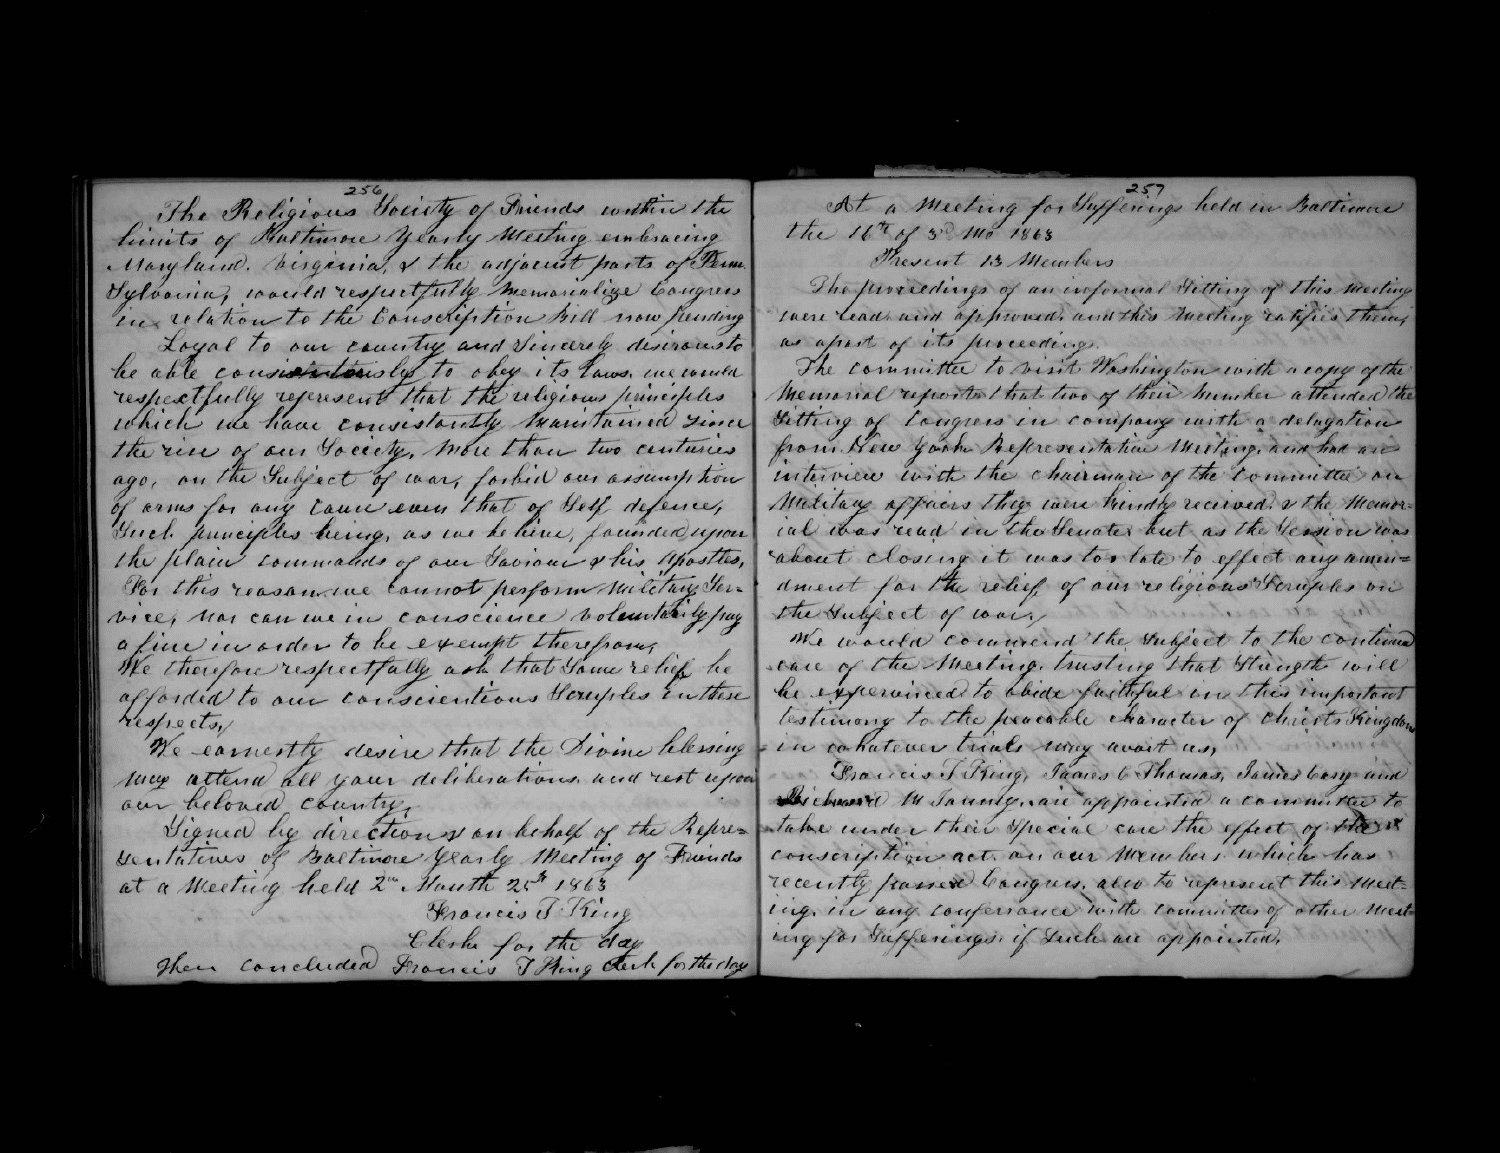 256
The Religious Society of Friends within the
limits of Baltimore Yearly Meeting embracing
Maryland. Virginia, & the adjacent parts of Penn
Sylvania, would respectfully Memorialize Congress
in relation to the Conscription Bill now pending
Loyal to our country and Sincerely desirous to
be able consistently to obey its laws. we would
respectfully represent that the religious principles
which we have consistantly maintained since
the rise of our Society, more than two centuries
ago, on the Subject of war, forbid our assumption
of arms for any cause even that of Self defence,
Such principles being, as we believe, founded upon
the plain commands of our Saviour & his Apostles,
For this reason we cannot perform military Ser-
vice, nor can we in conscience voluntarily pay
a fine in order to be exempt therefrom,
We therefore respectfully ask that Some relief be
afforded to our conscientious Scruples in these
respects,
We earnestly desire that the Divine blessing
may attend all your deliberations and rest upon
our beloved country,
Signed by direction & on behalf of the Repre=
sentatives of Baltimore Yearly Meeting of Friends
at a Meeting held 2nd Month 25th 1863
Francis T King
Clerke for the day
Then concluded Francis T King Clerk for the day
257
At a Meeting for Sufferings held in Baltimore
the 16th of 3d Mo 1863
Present 13 Members
The proceedings of an informal Sitting of this Meeting
were read and approved. and this Meeting ratifies them,
as a part of its proceedings.
The committee to visit Washington with a copy of the
Memorial reports that two of their Member attended the
Sitting of Congress in company with a delegation
from New York Representative Meeting. and had an
interview with the chairman of the Committee on
Military affairs they were kindly received. & the Memor-
ial was read in the Senate but as the Session was
about closing it was too late to effect any amen=
dment for the relief of our religious Scruples on
the Subject of war,
We would commend the Subject to the continued
care of the Meeting. trusting that Strength will
be experienced to abide faithful in this important
testimony to the peacable character of Christs Kingdom
in whatever trials may await us,
Francis T King, James C Thomas, James Cary and
Richard M Janney. are appointed a committee to
take under their Special care the effect of the
conscription act. on our Members which has
recently passed Congress. also to represent this Meet=
ing. in any conferrance with committes of other Meet=
ing for Sufferings. if Such are appointed.